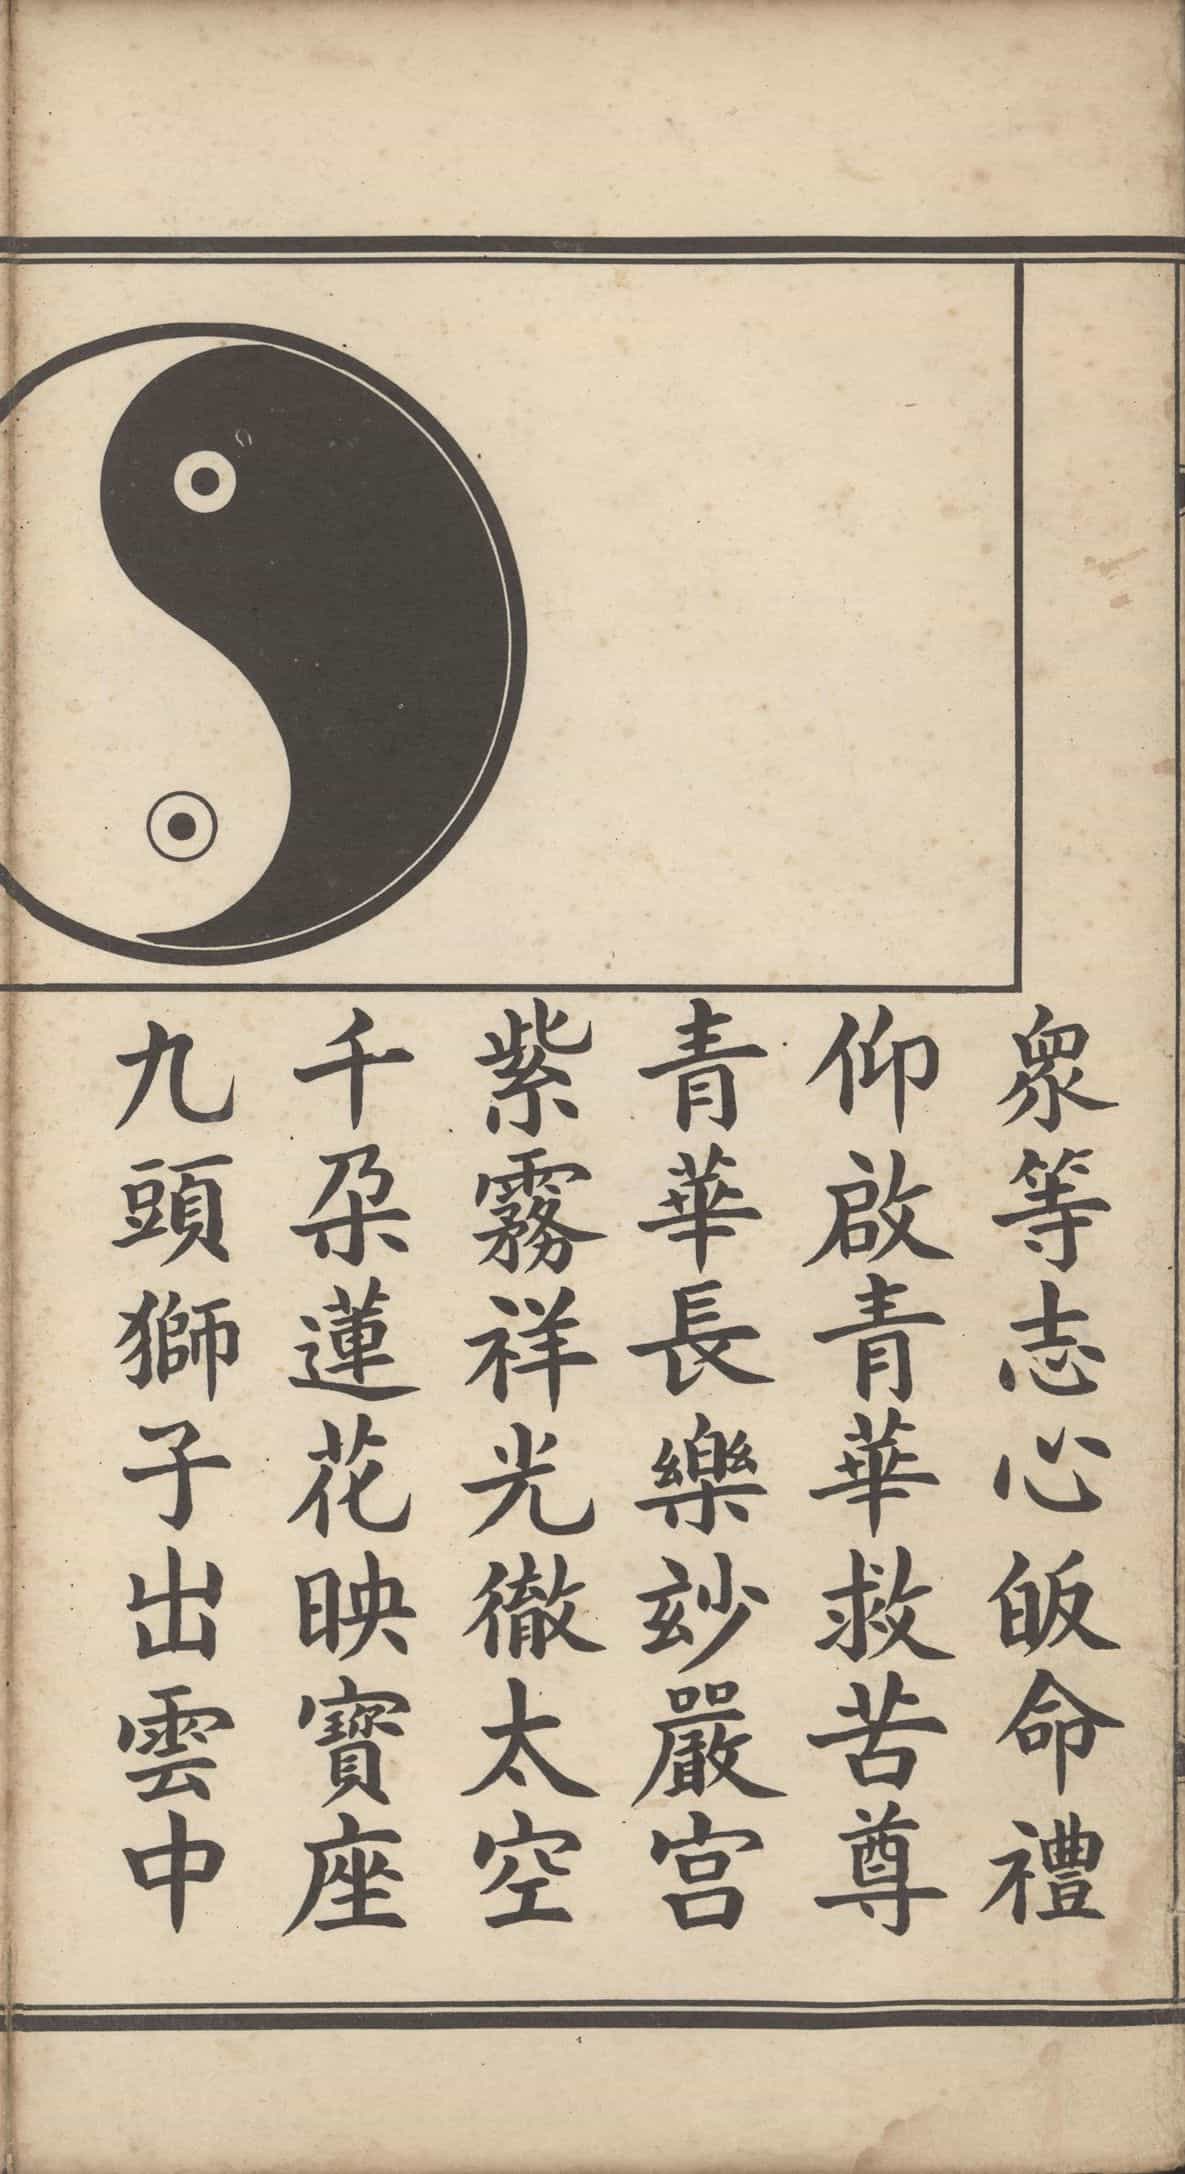 衆等志心皈命禮
仰啟青華救苦尊
青華長樂玅嚴宫
紫霧祥光徹太空
千朶蓮花映寶座
九頭獅子出雲中